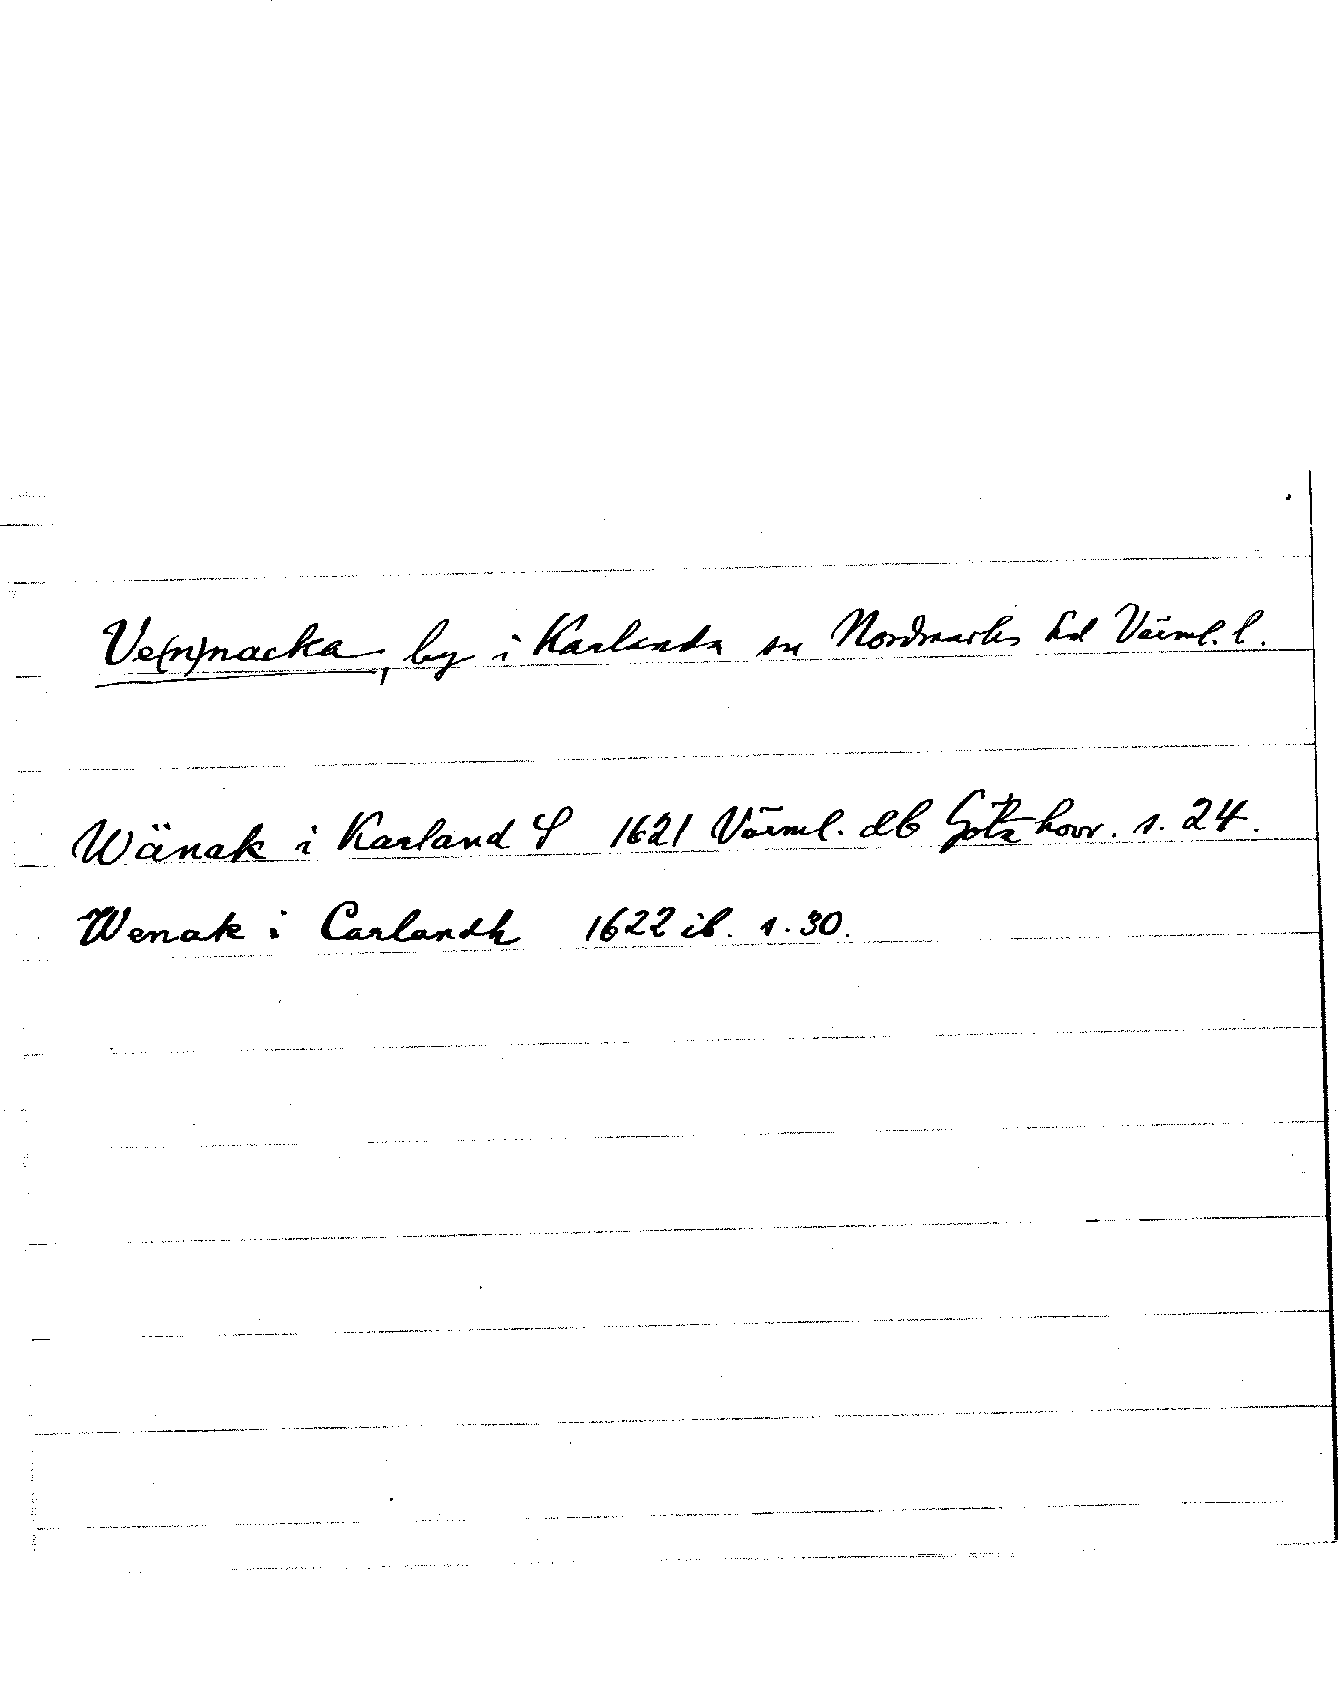 Ve(n)nacka, by i Karlanda sn Nordmarks hd Värml. l.
Wänak i Karland S 1621 Värml. db Göta hovr. s. 24.
Wenak i Carlandh 1622 ib. s. 30.